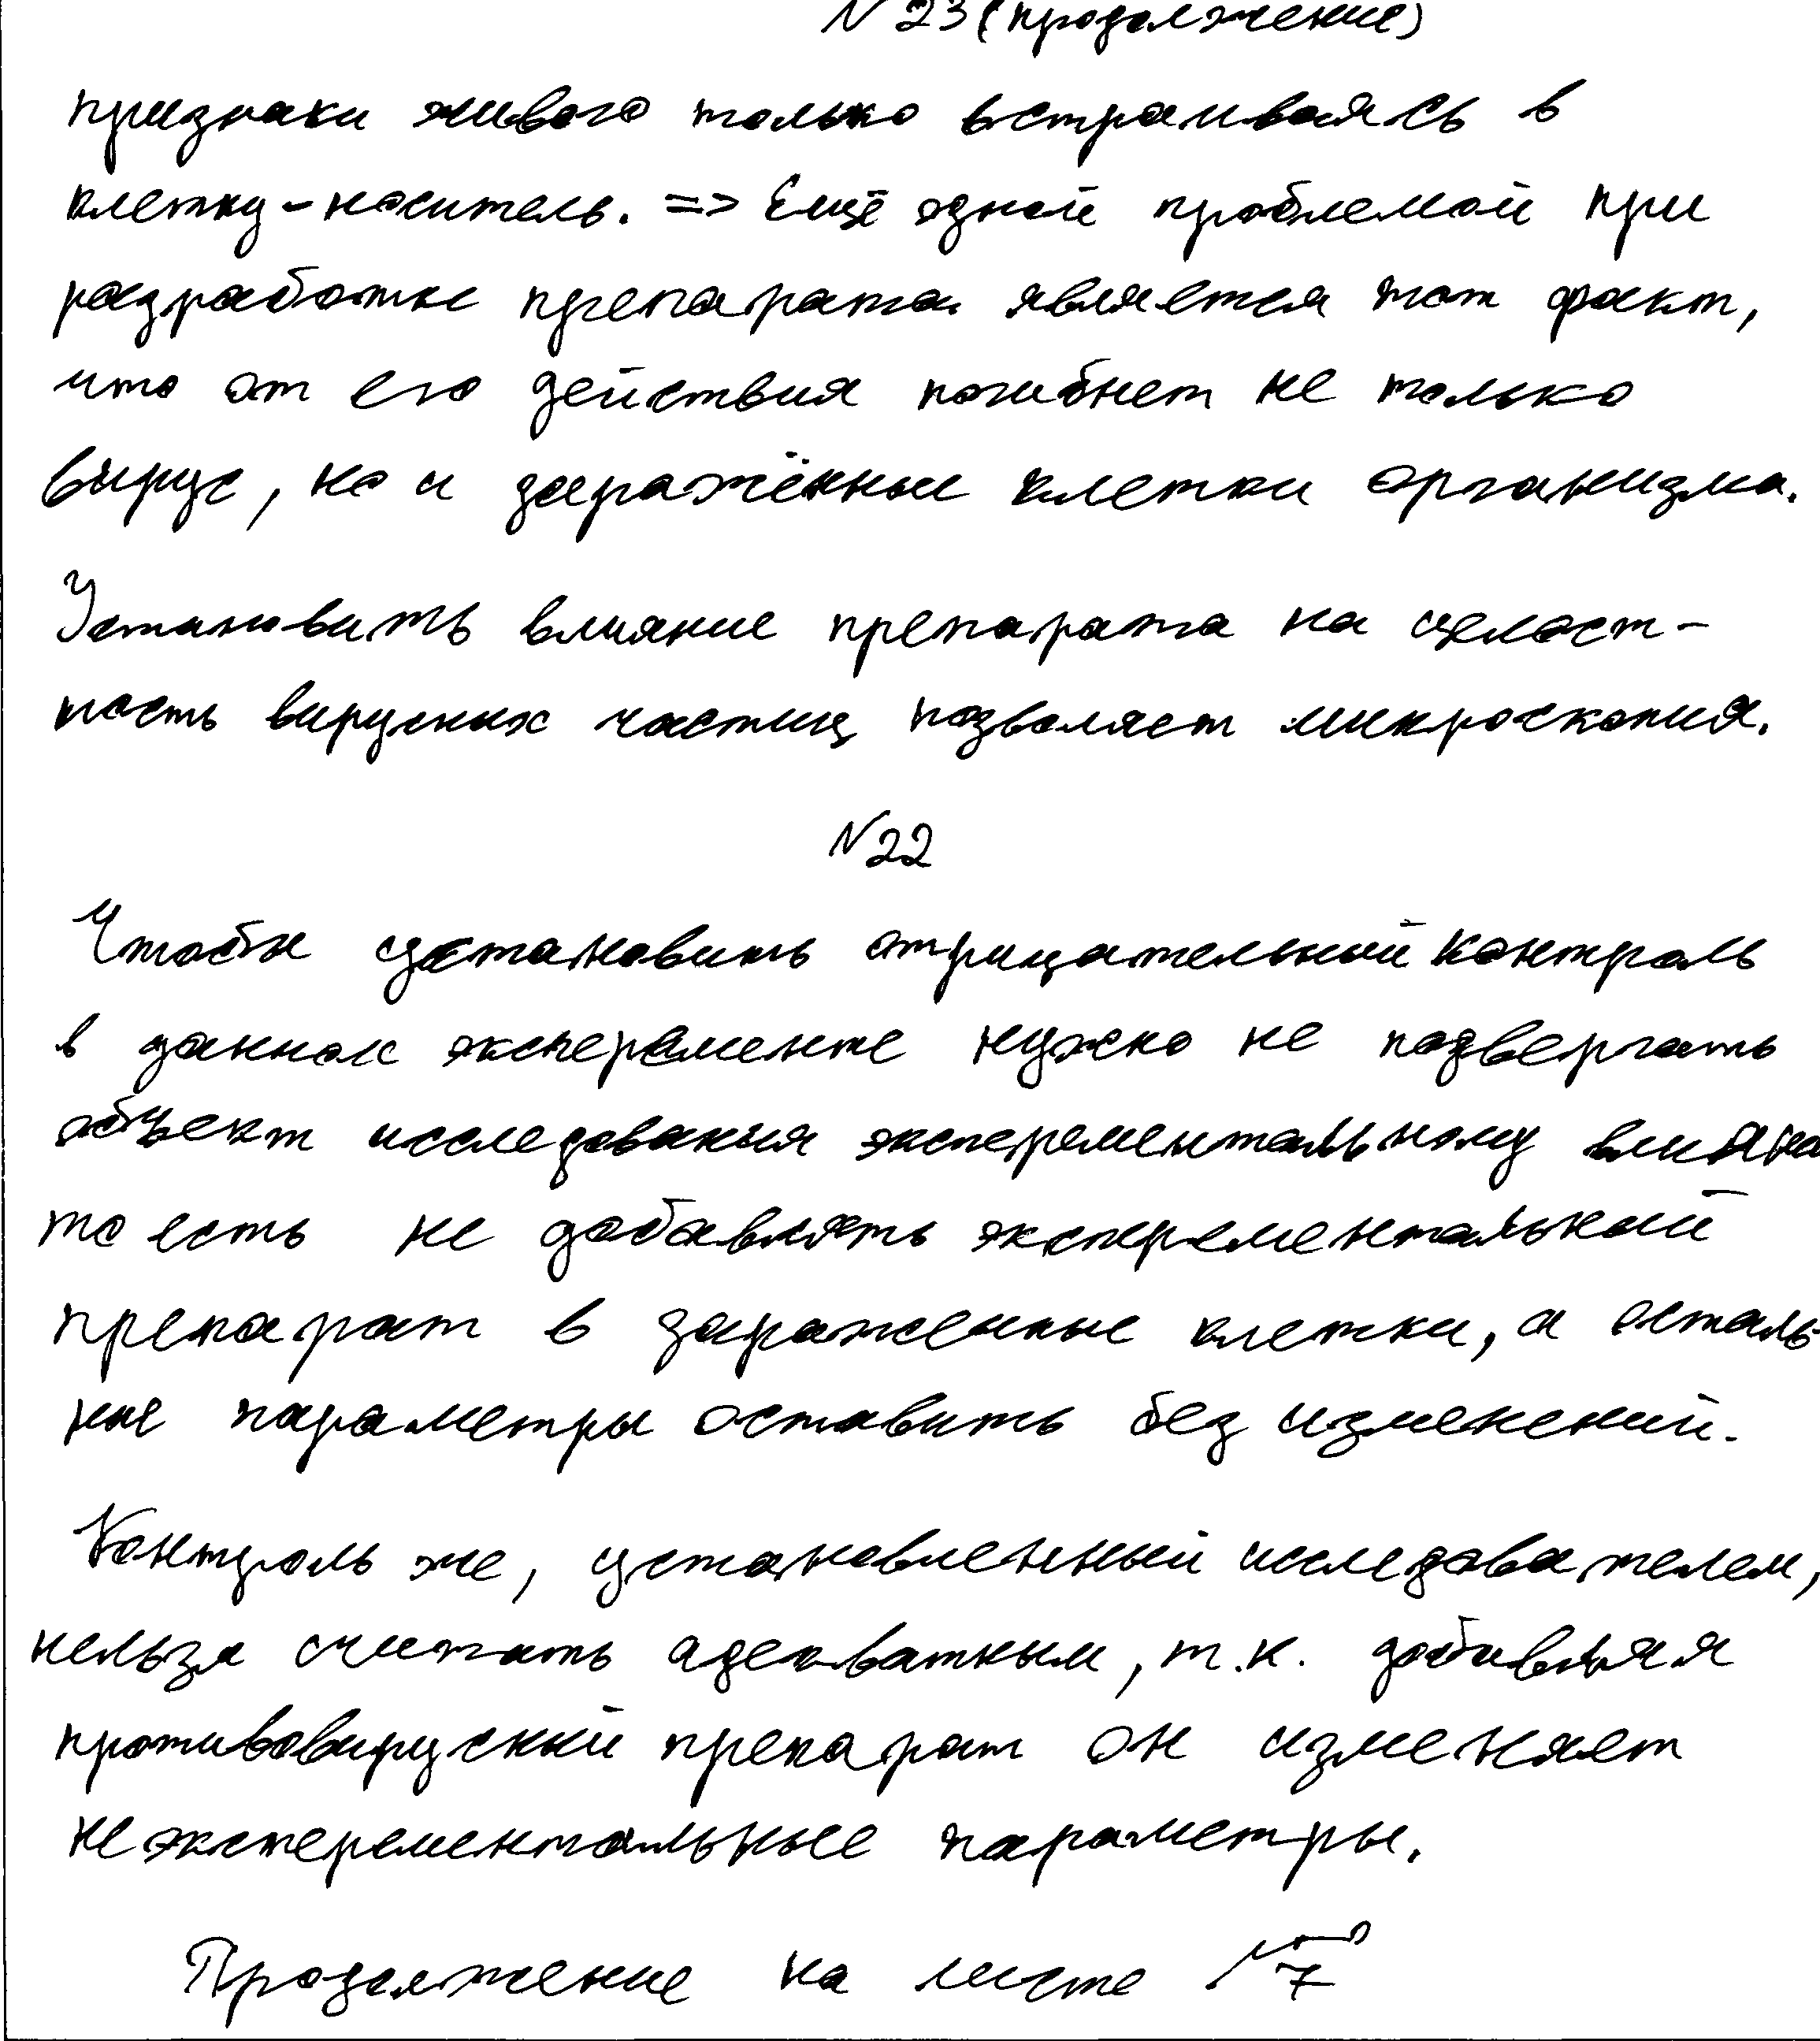 № 23 (продолжение)
признаки живого только встраиваясь в
клетку-носитель. => Ещё одной проблемой при
разработке препарата является тот факт,
что от его действия погибнет не только
вирус, но и заражённые клетки организма.
Установить влияние препарата на целост-
ность вирусных частиц позволяет микроскопия.
№22
Чтобы установить отрицательный контроль
в данном эксперементе нужно не подвергать
объект исследования эксперементальному
то есть не добавлять эксперементальный
препарат в зараженные клетки, а осталь-
ные параметры оставить без изменений.
Контроль же, установленный исследователем,
нельзя считать адекватным, т.к. добавляя
противовирусный препарат он изменяет
неэксперементальные параметры.
Продолжение на листе №7